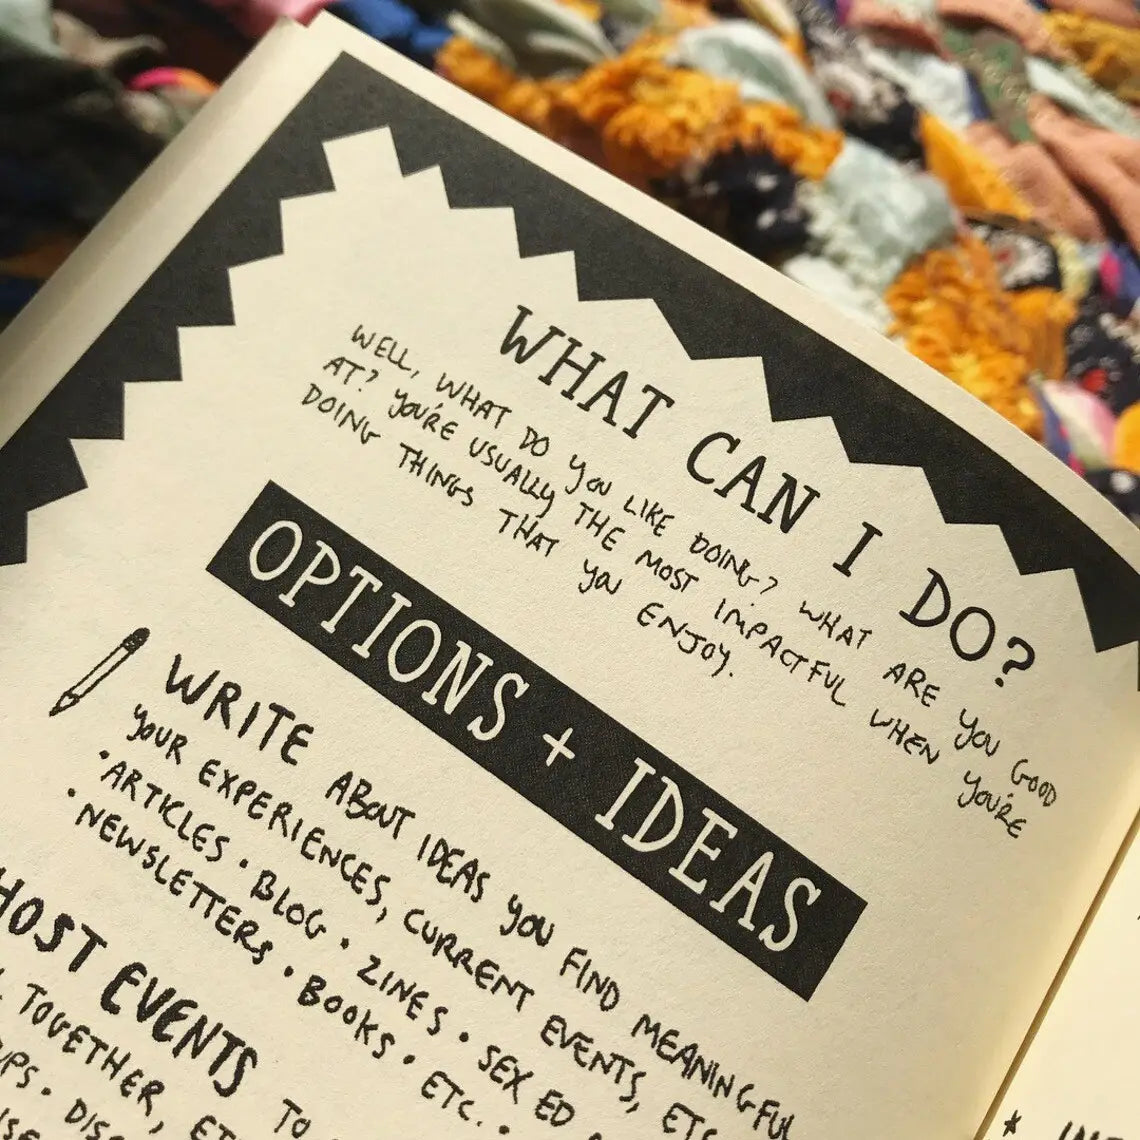 WHAT CAN I DO?
WELL, WHAT DO YOU LIKE DOING? WHAT ARE YOU GOOD
AT? YOU'RE USUALLY THE MOST IMPACTFUL WHEN YOU'RE
DOING THINGS THAT YOU ENJOY.
OPTIONS + IDEAS
WRITE ABOUT IDEAS YOU FIND MEANINGFUL
YOUR EXPERIENCES, CURRENT EVENTS, ETC.
• ARTICLES • BLOG • ZINES • SEX ED
• NEWSLETTERS • BOOKS • ETC. •
HOST EVENTS TO
TOGETHER,